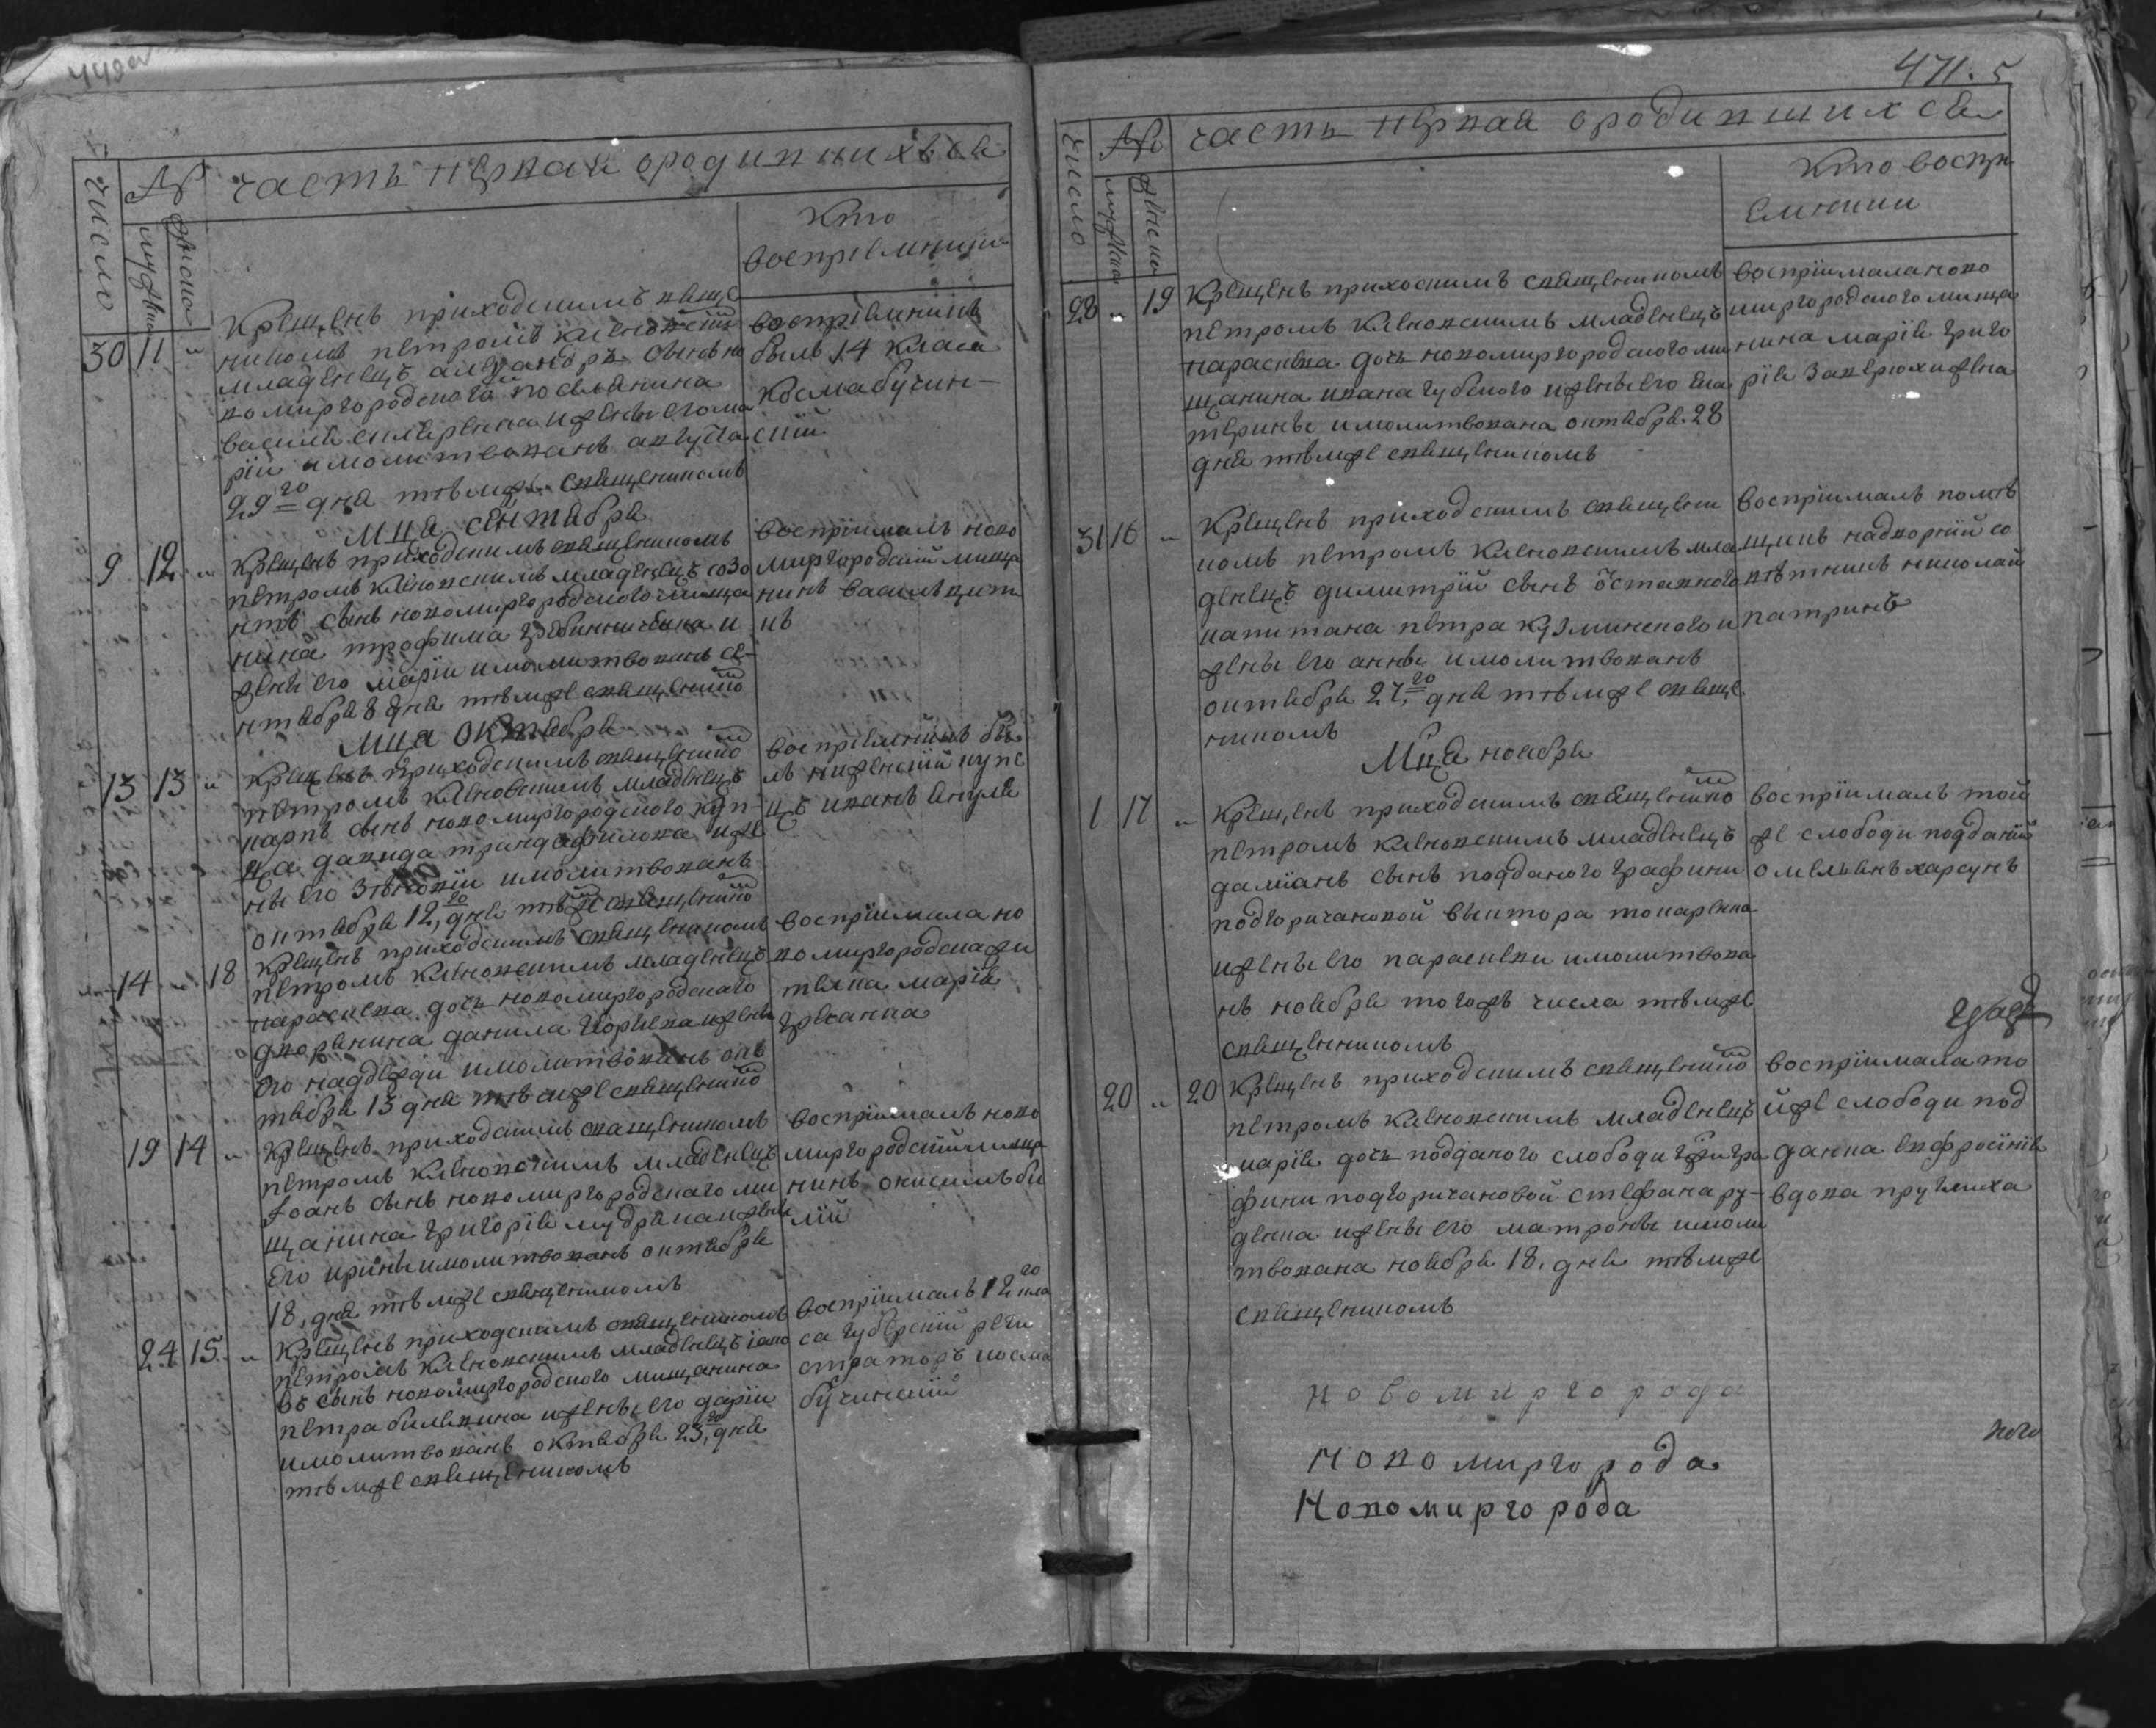 448об
часть первая о родившихся
число
№
мужеска
женска
кто
воспріемники
30 11 „
Крещенъ приходскимъ свяще
никомъ петромъ Кіяновским
младенецъ алеѯандръ сынъ но
вомиргородского поселянина
василія и жены его ма
ріи и молитвованъ августа
29го дня тѣмже священикомъ
воспріемникъ
былъ 14 класа
Косма бучин-
скій
Мца сентября
9 12 „
Крещенъ приходскимъ священикомъ
петромъ Кіяновскимъ младенецъ созо
нтъ сынъ новомиргородского меща
нина трофима гребинниченка и
жены его маріи и молитвованъ се-
нтября 8 дня тѣмже священико
воспріималъ ново
миргородскій меща
нинъ василь
Мца октября
13 13 „
Крещенъ приходскимъ священико
петромъ Кіяновскимъ младенецъ
карпъ сынъ новомиргородского куп-
ца давида трандафилова и же
ны его зѣновіи и молитвованъ
октября 12го дня тѣмже священико
воспріемникъ бы
лъ нѣженскій купе
цъ иванъ
14 „ 18
Крещенъ приходскимъ священикомъ
петромъ Кіяновскимъ младенецъ
параскева дочь новомиргородскаго
дворянина данила и жены
его надежди и молитвованъ ок
тября 13 дня тѣмже священико
воспріимала но
вомиргородска жи
телка марія
19 14 „
Крещенъ приходскимъ священикомъ
петромъ Кіяновскимъ младенецъ
Іоанъ сынъ новомиргородскаго ме
щанина григорія мудрака и жены
его ирины и молитвованъ октября
18, дня тѣмже священикомъ
воспріималъ ново
миргородскій меща
нинъ онисимъ би
лій
24 15 „
Крещенъ приходскимъ священикомъ
петромъ Кіяновскимъ младенецъ іако
въ сынъ новомиргородского мещанина
петра и жены его даріи
и молитвованъ октября 23го дня
тѣмже священикомъ
воспріималъ 12го кла
са губерскій реги
страторъ косма
бучинскій
471. 5
часть первая о родившихся
число
№
мужеска
женска
кто воспрі
емники
28 „ 19
Крещенъ приходскимъ священикомъ
петромъ Кіяновскимъ младенецъ
параскева дочь новомиргородского ме
щанина ивана губского и жены его ека
терины и молитвована октября 28
дня тѣмже священикомъ
воспріимала ново
миргородского меща
нина марія григо
рія жена
31 16 „
Крещенъ приходскимъ священи
комъ петромъ Кіяновскимъ мла
денецъ димитрій сынъ оставного
капитана петра кузминского и
жены его анны и молитвованъ
октября 27го дня тѣмже свяще
никомъ
воспріималъ помѣ
щикъ надворній со
вѣтникъ николай
Мца ноября
1 17 „
Крещенъ приходскимъ священико
петромъ Кіяновскимъ младенецъ
даміанъ сынъ подданого графини
подгоричановой виктора токаренка
и жены его параскеви и молитвова
нъ ноября тогожъ числа тѣмже
священникомъ
воспріималъ той
же слободи подданій
омелянъ харсунъ
20 „ 20
Крещенъ приходскимъ священико
петромъ Кіяновскимъ младенецъ
марія дочь подданого слободи гра
фини подгоричановой стефана ру-
денка и жены его матроны и моли
твована ноября 18, дня тѣмже
священикомъ
воспріимала то
йже слободи под
данна евфросінія
вдова
новомиргорода
новомиргорода
Новомиргорода